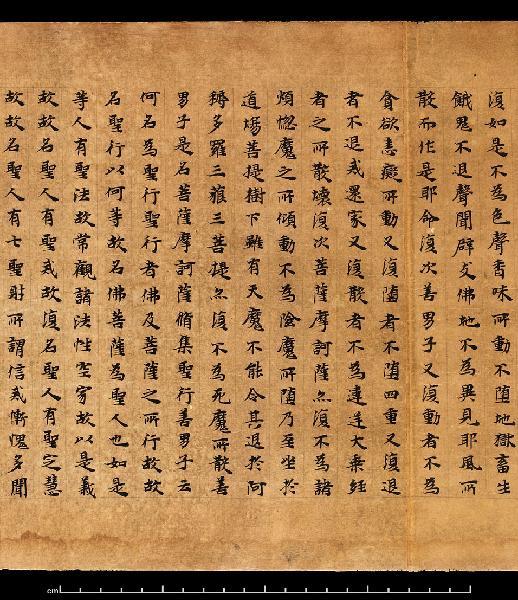 復如是不為色聲香味所動不墮地獄畜生
餓鬼不退聲聞辟支佛地不為異見耶風所
散而作是耶命復次善男子又復動者不為
貪欲恚癡所動又復墮者不墮四重又復退
者不退戒還家又復散者不為違逆大乘經
者之所散壞復次菩薩摩訶薩亦復不為諸
煩惱魔之所傾動不為陰魔所墮乃至坐於
道場菩提樹下雖有天魔不能令其退於阿
耨多羅三藐三菩提亦復不為死魔所散善
男子是名菩薩摩訶薩脩集聖行善男子云
何名為聖行聖行者佛及菩薩之所行故故
名聖行以何等故名佛菩薩為聖人也如是
等人有聖法故常觀諸法性空寂故以是義
故故名聖人有聖戒故復名聖人有聖定慧
故故名聖人有七聖財所謂信戒慚愧多聞
cm